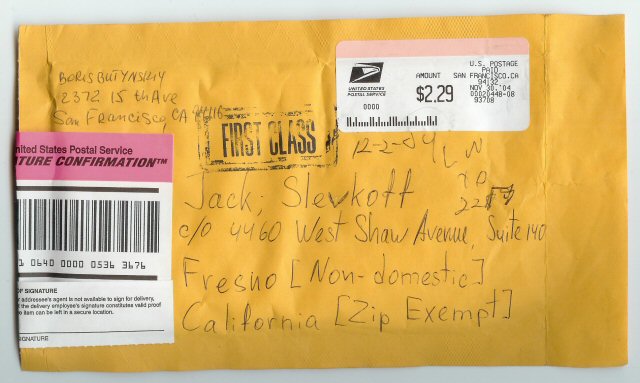 BORIS BUTYNSKIY
2372 15 th Ave
San Francisco, CA 94116
UNITED STATES
POSTAL SERVICE
0000
AMOUNT
$2.29
U.S. POSTAGE
PAID
SAN FRANCISCO.CA
94132
NOV 30.'04
00020448-08
93708
FIRST CLASS
12-2-04
nited States Postal Service
ATURE CONFIRMATION™
1 0640 0000 0536 3676
OF SIGNATURE
addressee's agent is not available to sign for delivery,
the delivery employee's signature constitutes valid proof
item can be left in a secure location.
SIGNATURE
Jack; Slevkoff
c/o 4460 West Shaw Avenue, Suite 140
Fresno [Non-domestic]
California [Zip Exempt]